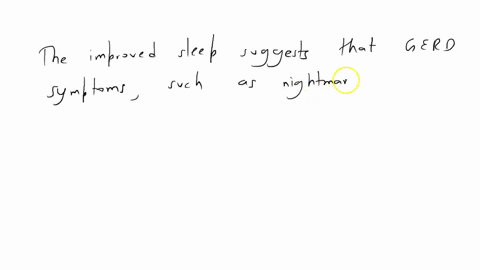 The improved sleep suggests that GERD
symptoms, such as nightmar